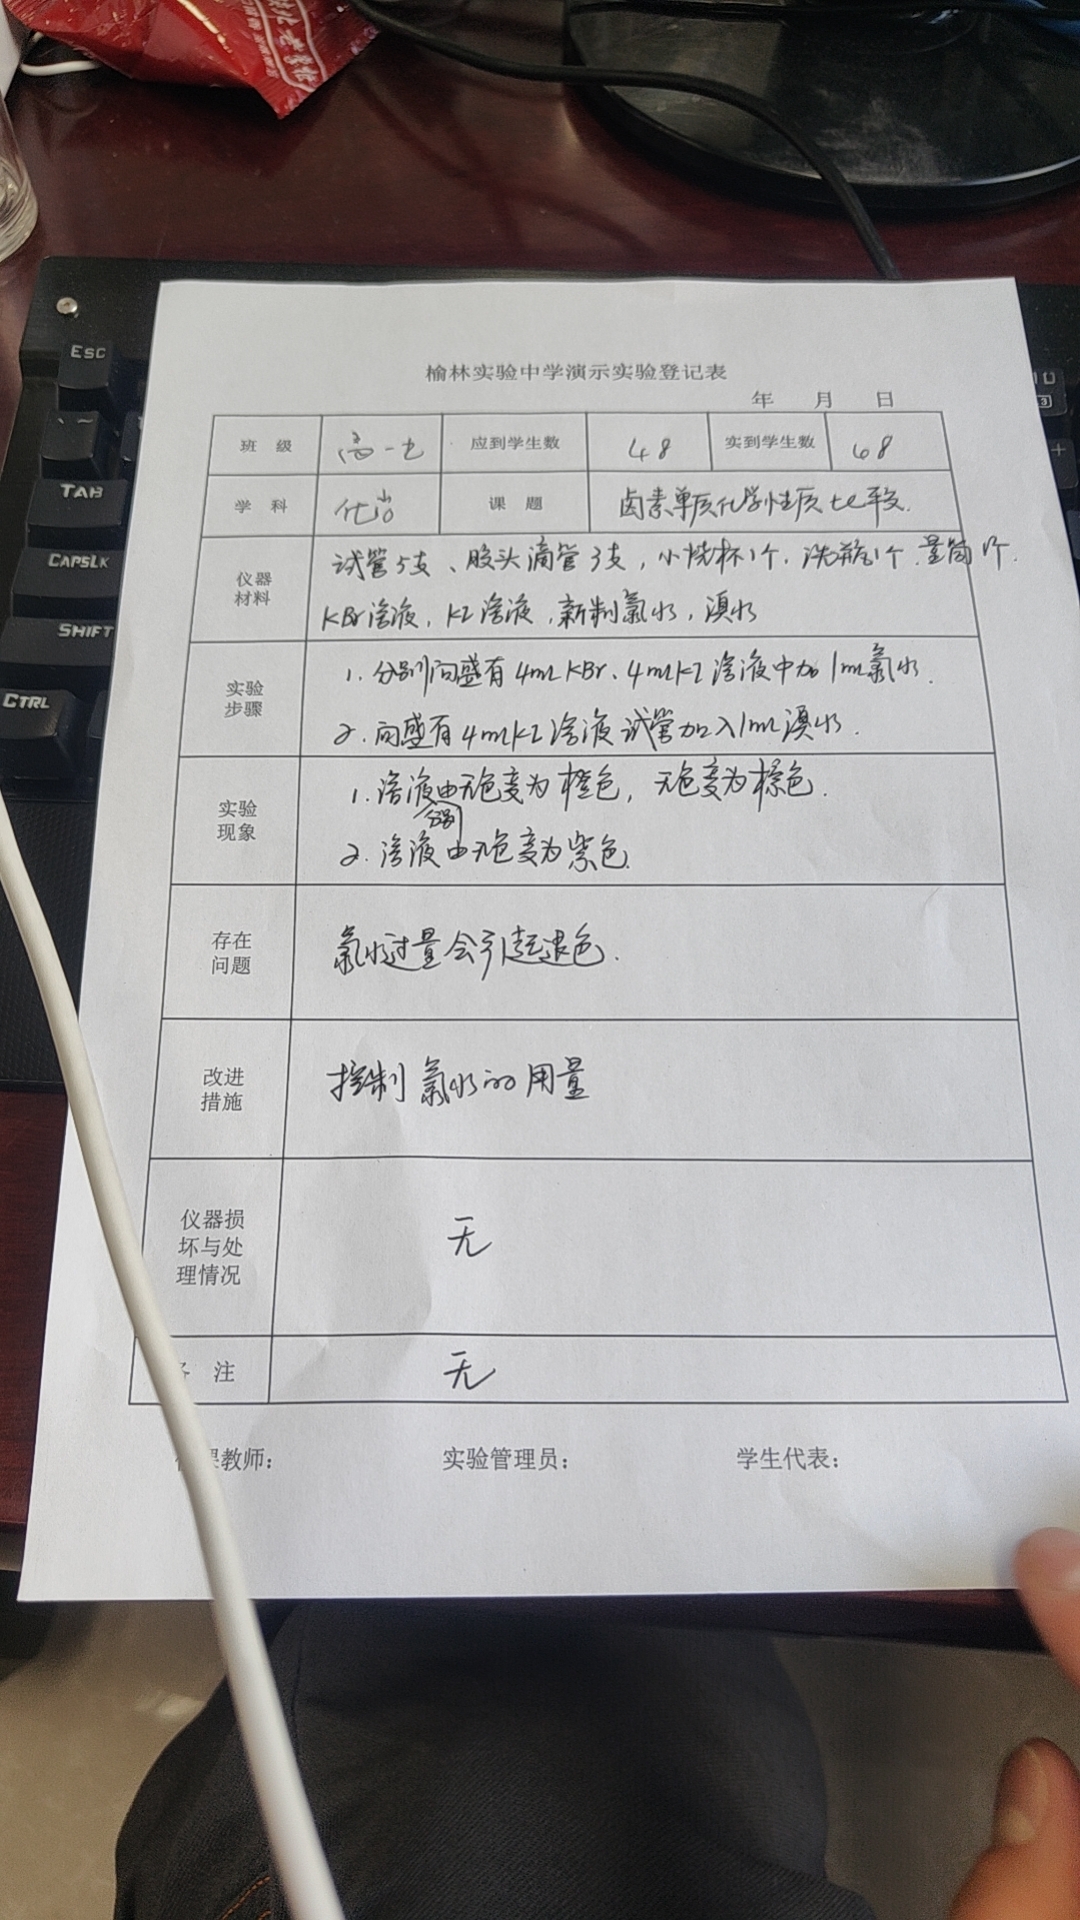 Esc
TAB
CAPSLK
SHIFT
CTRL
榆林实验中学演示实验登记表
年 月 日
班 级 高一七 应到学生数 48 实到学生数 48
学 科 化学 课 题 卤素单质化学性质比较.
仪器材料 试管5支、胶头滴管3支，小烧杯1个．洗瓶1个．量筒1个．
KBr溶液，KI溶液，新制氯水，溴水
实验步骤 1. 分别向盛有4mLKBr、4mLKI溶液中加1mL氯水．
2. 向盛有4mLKI溶液试管加入1mL溴水．
实验现象 1. 溶液分别由无色变为橙色，无色变为棕色．
2. 溶液由无色变为紫色．
存在问题 氯水过量会引起退色．
改进措施 控制氯水的用量
仪器损坏与处理情况 无
注 无
教师： 实验管理员： 学生代表：